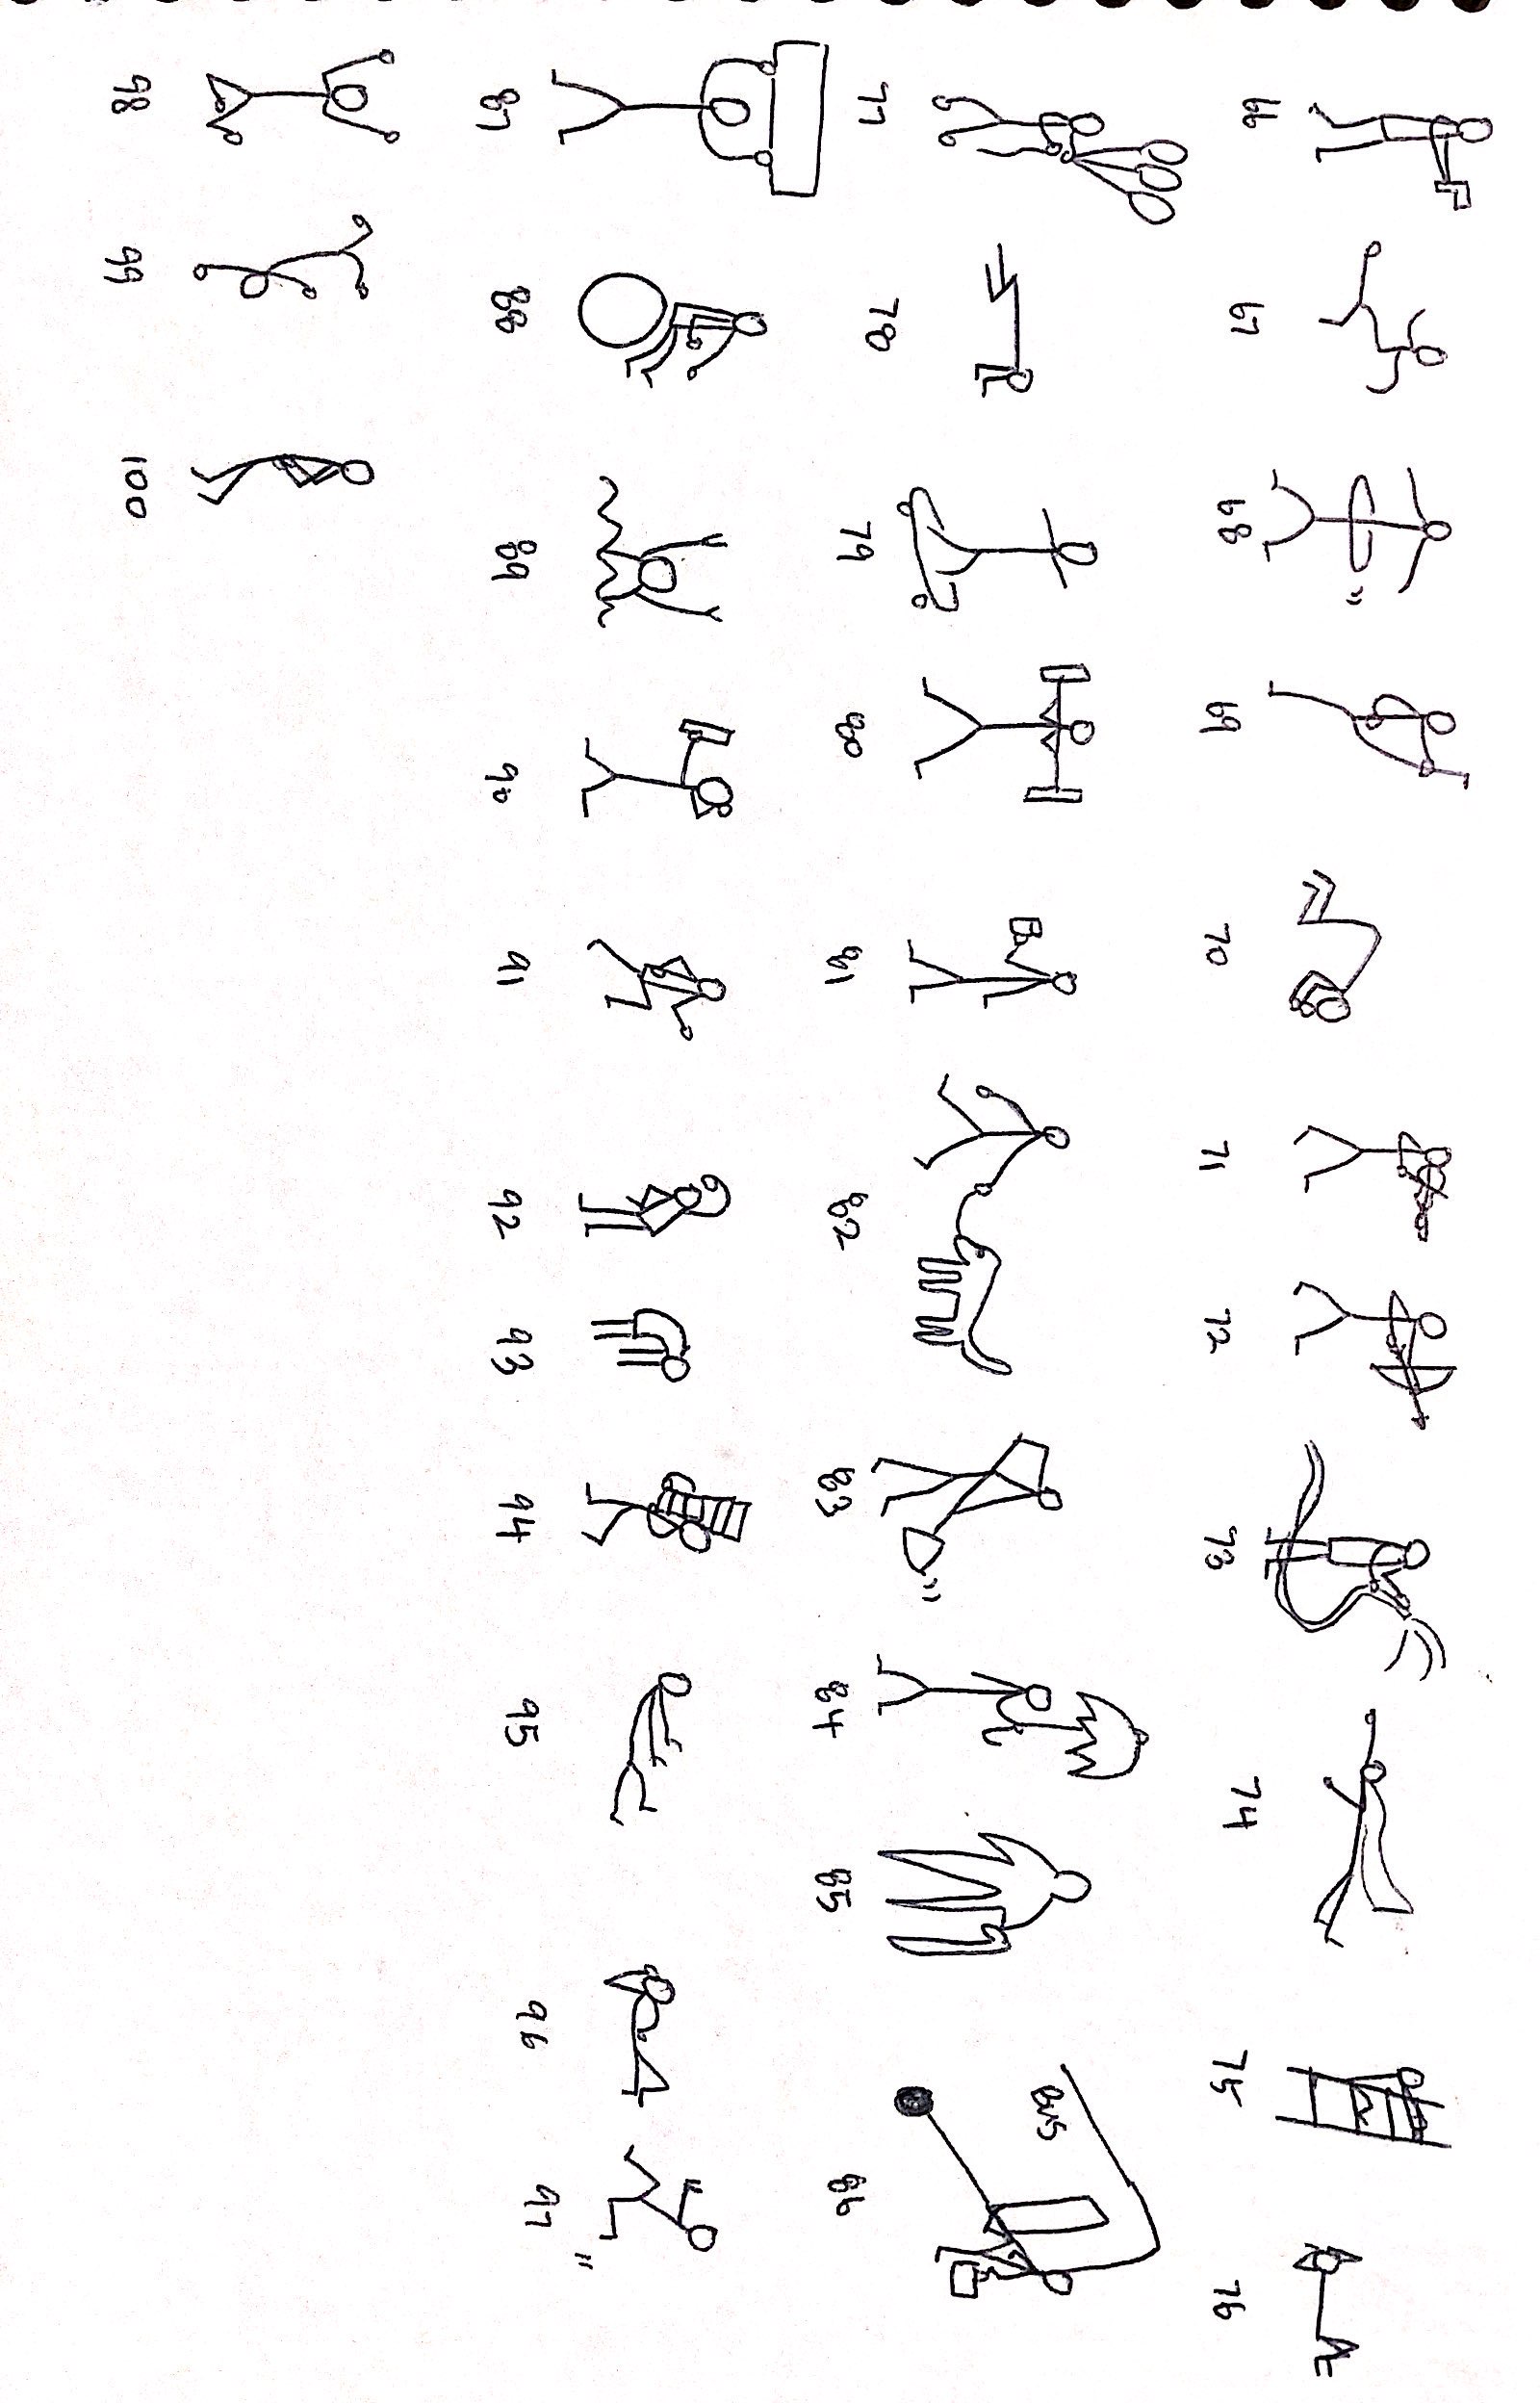 66 67 68 69 70 71 72 73 74 75 76
BUS
77 78 79 80 81 82 83 84 85 86
87 88 89 90 91 92 93 94 95 96 97
98 99 100